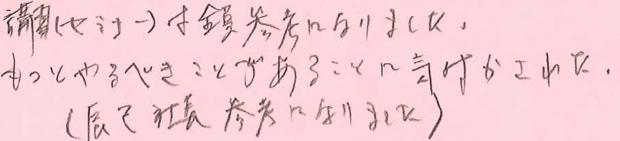 講習(セミナー)は全員参考になりました。
もっとやるべきことがあることに気付かされた。
(辰己社長 参考になりました)